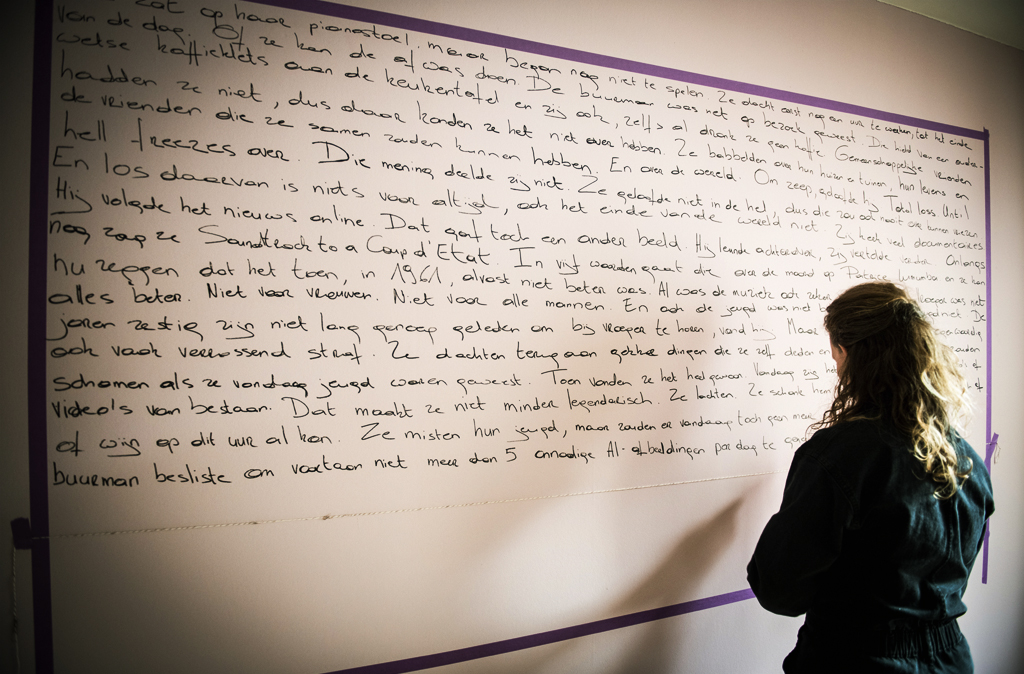 zat op haar pianostoel, maar begon nog niet te spelen. Ze dacht eerst nog een uur te wachten, tot het einde
van de dag. Of ze kan de afwas doen. De buurman was net op bezoek geweest. Die hield van een ouder-
wetse koffieklets aan de keukentafel en zij ook, zelfs al dronk ze geen koffie. Gemeenschappelijke vrienden
hadden ze niet, dus daar konden ze het niet over hebben. Ze babbelden over hun huizen en tuinen, hun levens en
de vrienden die ze samen zouden kunnen hebben. En over de wereld. Om zeep, geloofde hij. Total loss. Until
hell freezes over. Die mening deelde zij niet. Ze geloofde niet in de hel, dus die zou ook nooit
En los daarvan is niets voor altijd, ook het einde van de wereld niet. Zij keek veel documentaires
Hij volgde het nieuws online. Dat gaf toch een ander beeld. Hij leunde achterover, zij vertelde verder. Onlangs
nog zag ze Soundtrack to a Coup d'Etat. In vijf woorden gaat die over de moord op Patrice Lumumba en ze kan
hu zeggen dat het toen, in 1961, alvast niet beter was. Al was de muziek ook zeker vroeger was niet
alles beter. Niet voor vrouwen. Niet voor alle mannen. En ook de jeugd was niet De
jaren zestig zijn niet lang genoeg geleden om bij vroeger te horen, vond hij. Maar
ook vaak verrassend straf. Ze dachten terug aan gekke dingen die ze zelf deden en
schamen als ze vandaag jeugd waren geweest. Toen vonden ze het heel gewoon. Vandaag zijn
video's van bestaan. Dat maakt ze niet minder legendarisch. Ze lachten. Ze schonk hem
of wijn op dit uur al kan. Ze misten hun jeugd, maar zouden er vandaag toch geen meer
buurman besliste om voortaan niet meer dan 5 onnodige AI-afbeeldingen per dag te